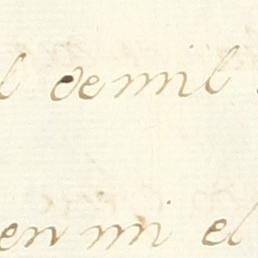 l de mil
en mi el